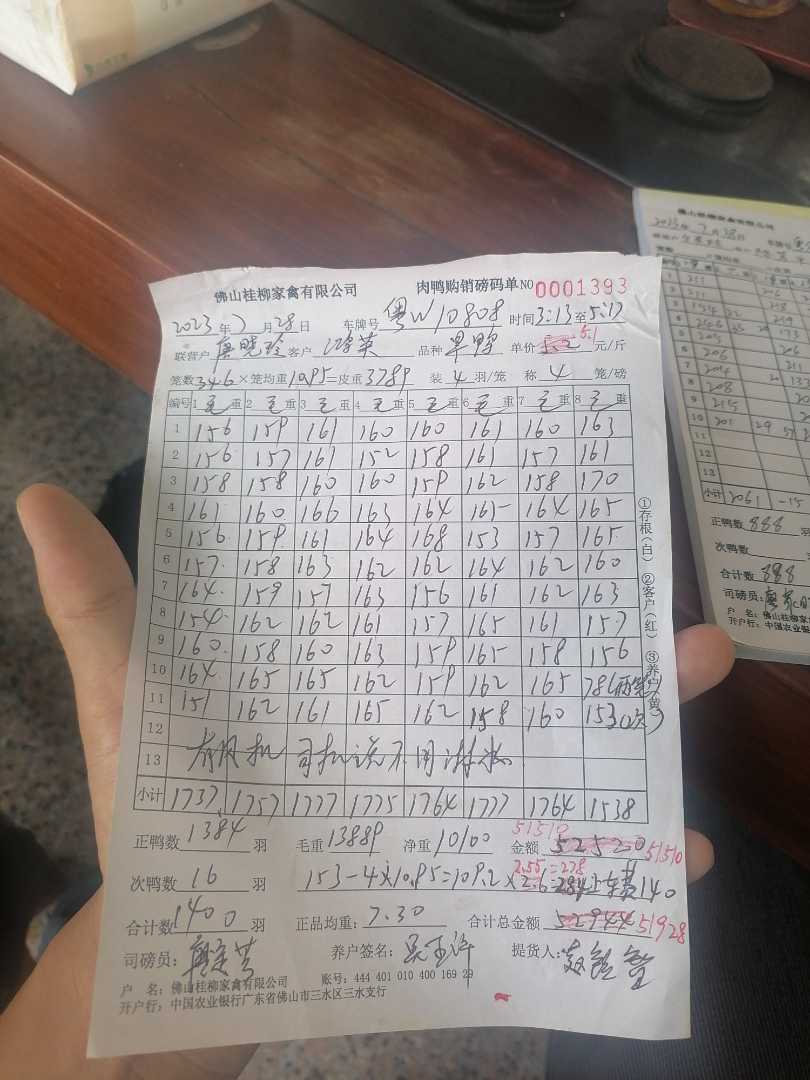 佛山桂柳家禽有限公司 肉鸭购销磅码单NO 0001393
2023年7月28日 车牌号 粤W10808 时间3:13至5:17
联营户 唐晓玲 客户 鸿英 品种 单价 5.2 5.1 元/斤
笼数346×笼均重10.95=皮重3789 装4羽/笼 称4笼/磅
编号 1毛重 2毛重 3毛重 4毛重 5毛重 6毛重 7毛重 8毛重
1 156 159 161 160 160 161 160 163
2 156 157 161 152 158 161 157 161
3 158 158 160 160 159 162 158 170
4 161 160 166 163 164 165 164 165
5 156 159 161 164 168 153 157 165
6 157 158 163 162 162 164 162 160
7 164 159 157 163 156 161 162 163
8 154 162 162 161 157 165 161 157
9 160 158 160 163 159 165 158 156
10 164 165 165 162 159 162 165 78(两笼)
11 151 162 161 165 162 158 160 153(次)
12
13 有风机 司机说不用淋水
小计 1737 1757 1777 1775 1764 1777 1764 1538
正鸭数1384羽 毛重13889 净重10100 金额 52520 51510 51510
次鸭数16羽 153-4×10.95=109.2×2.6=284 2.55=278 上车费140
合计数1400羽 正品均重:7.30 合计总金额 52944 51928
司磅员: 养户签名: 提货人:
户 名:佛山桂柳家禽有限公司 账号:444 401 010 400 169 29
开户行:中国农业银行广东省佛山市三水区三水支行
①存根(白) ②客户(红) ③养户(黄)
佛山桂柳家禽有限公司
2023年7月28日 车牌号
正鸭数888羽
次鸭数 羽
合计数888羽
司磅员:
户 名:佛山桂柳家禽
开户行:中国农业银